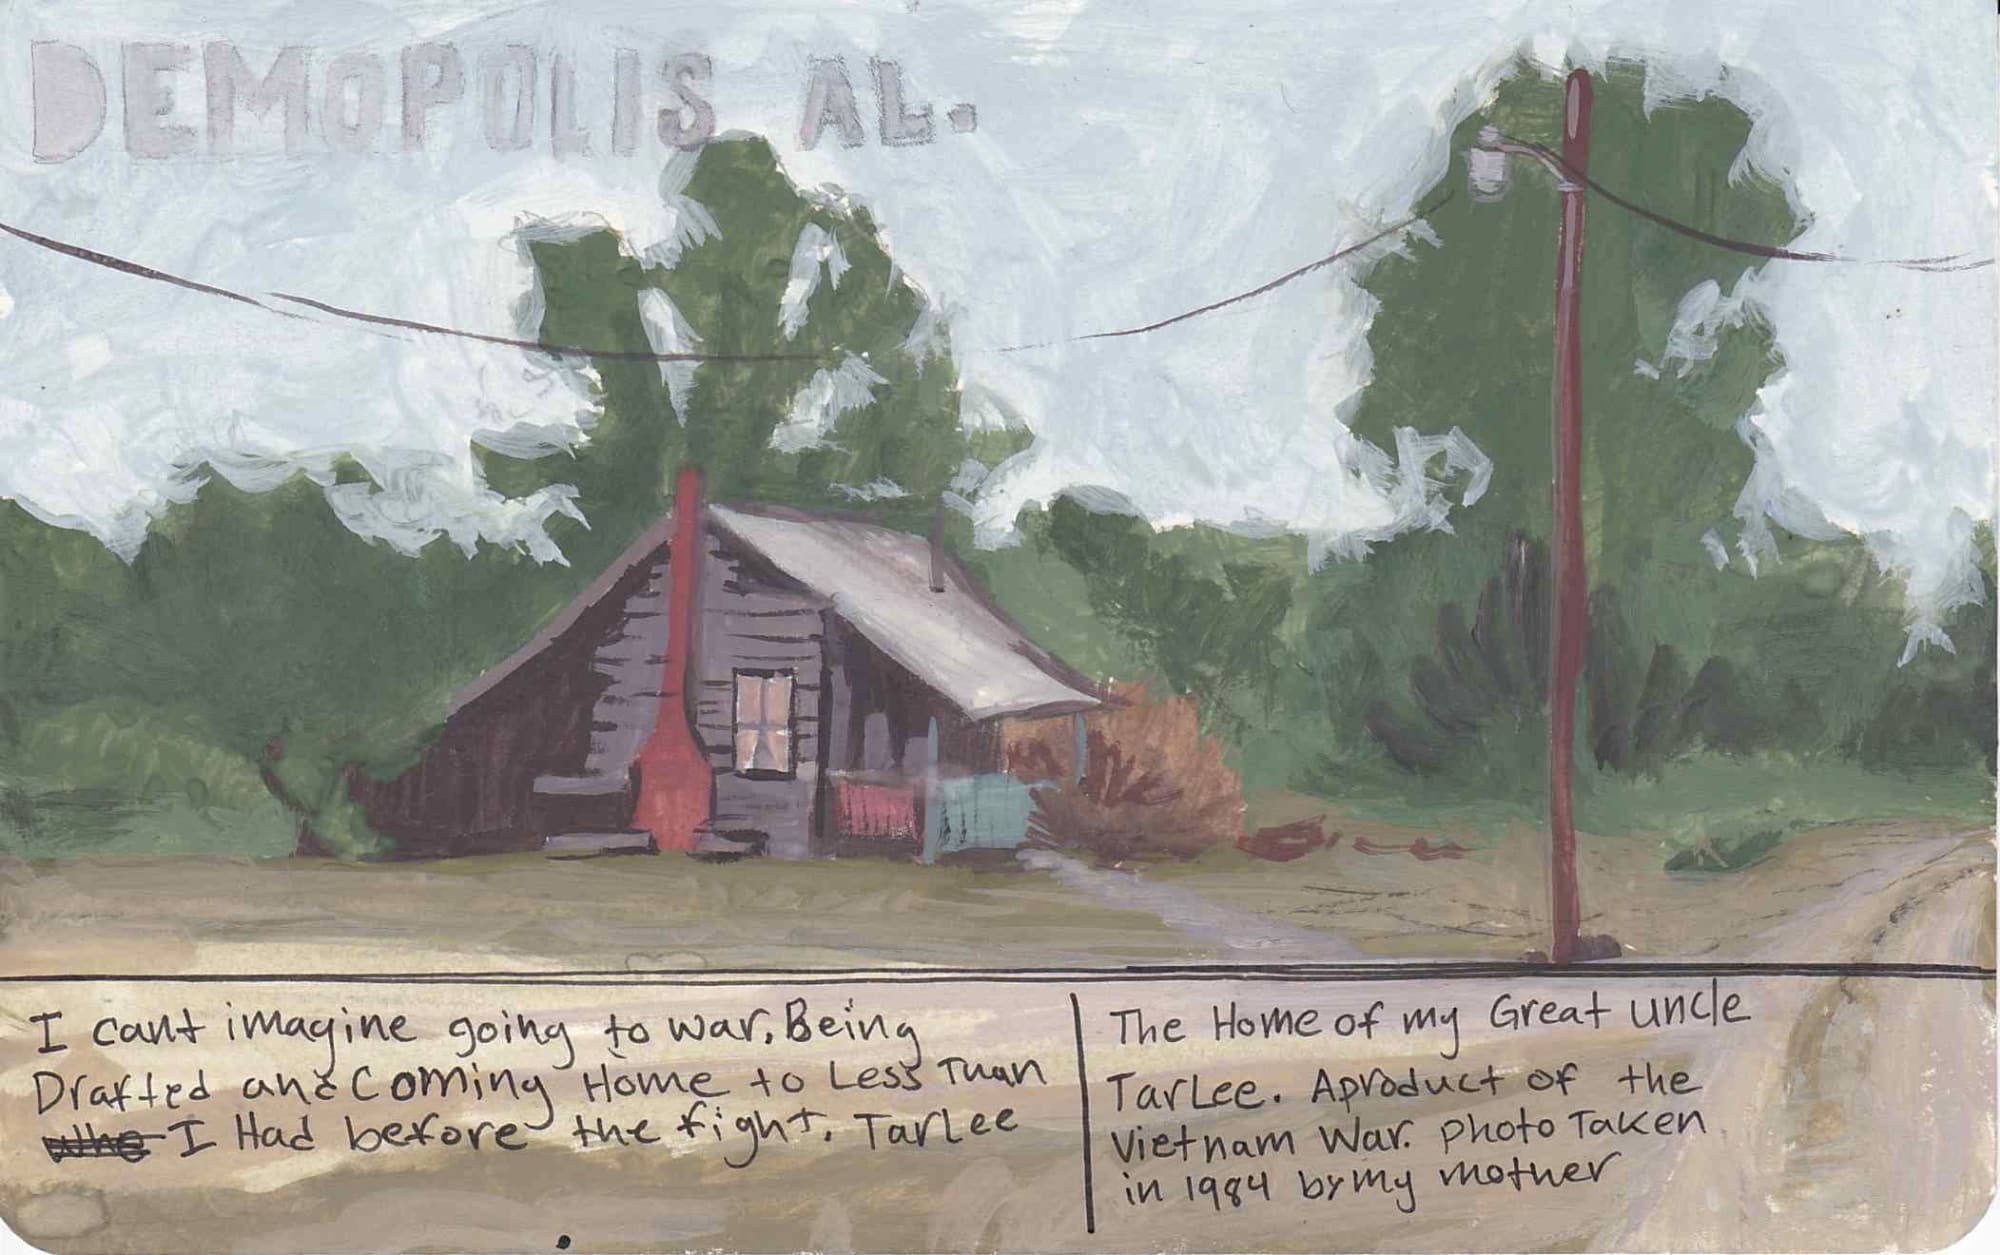 DEMOPOLIS AL.
I cant imagine going to war. Being
Drafted and coming Home to Less Than
I Had before the fight. TarLee
The Home of my Great uncle
TarLee. Aproduct of the
Vietnam War. photo Taken
in 1984 by my mother